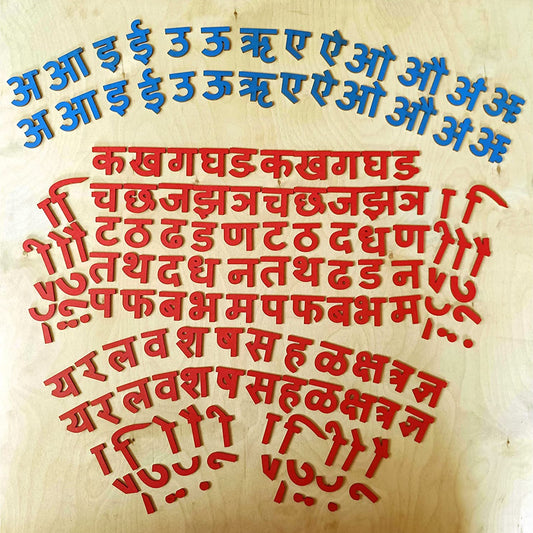 अ आ इ ई उ ऊ ऋ ए ऐ ओ औ अं
अ आ इ ई उ ऊ ऋ ए ऐ ओ औ अं
क ख ग घ ड क ख ग घ ड
च छ ज झ ञ च छ ज झ ञ
ट ठ ढ ड ण ट ठ द ध ण
त थ द ध न त थ ढ ड न
प फ ब भ म प फ ब भ म
य र ल व श ष स ह ळ क्ष त्र ज्ञ
य र ल व श ष स ह ळ क्ष त्र ज्ञ